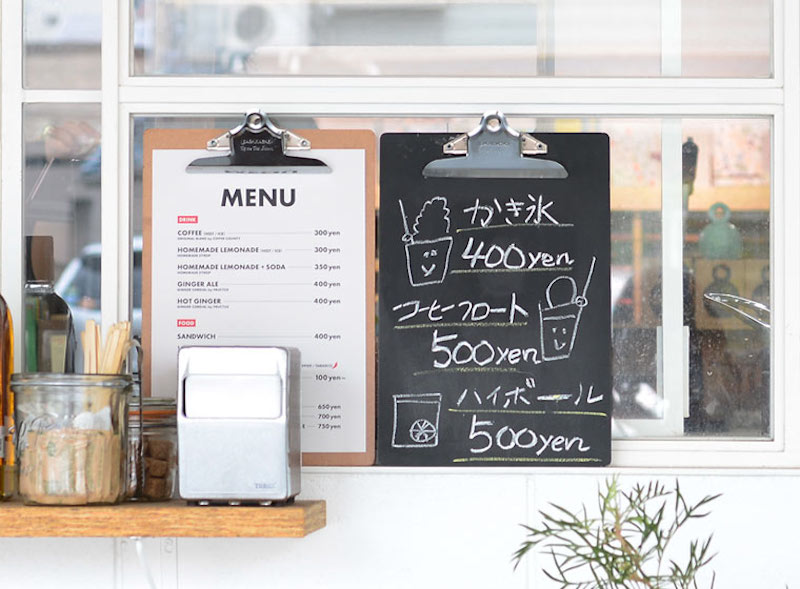 MENU
DRINK
COFFEE (HOT / ICE) 300 yen
HOMEMADE LEMONADE (HOT / ICE) 300 yen
HOMEMADE SYRUP
HOMEMADE LEMONADE + SODA 350 yen
HOMEMADE SYRUP
GINGER ALE 400 yen
HOT GINGER 400 yen
FOOD
SANDWICH 400 yen
100 yen
650 yen
700 yen
750 yen
かき氷
400yen
コーヒーフロート
500yen
ハイボール
500yen